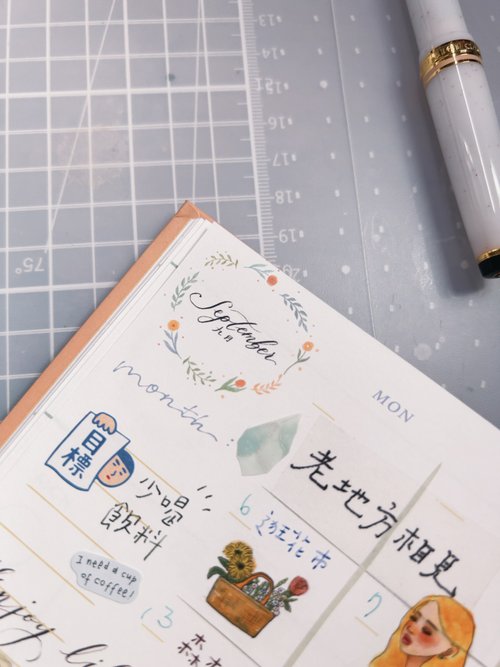 13
14
15
16
17
18
19
20
75°
September
九月
MON
month:
目標
少喝
飲料
I need a cup
of coffee!
老地方相見
6
花市
7
13
森森
Enjoy